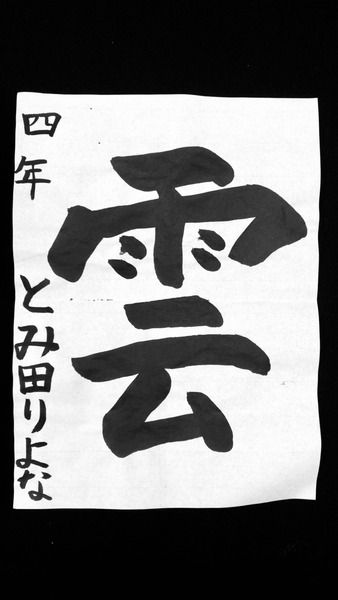 雲
四年 とみ田りよな